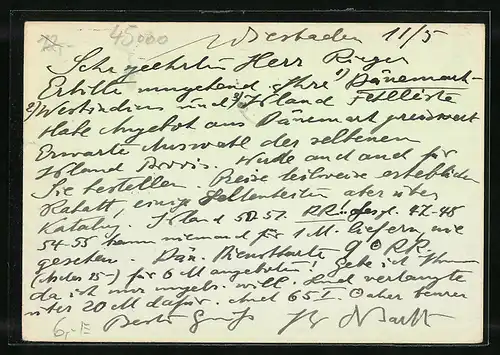 12,- 45000
Wiesbaden 11/5
Sehr geehrter Herr Rieger
Erbitte umgehend Ihre 1) Dänemark-
2) Westindien und 3) Island Fehlliste
Habe Angebot aus Dänemark preiswert
Erwarte Auswahl der selbenen
Island Werde auch auf für
Sie bestellen. Preise teilweise erheblichen
Rabatt, einige Seltenheiten aber über
Katalog. Island 50-51. 47-48
54-55 kann niemand für 1 M. liefern, nie
gesehen. Dän. Dienstkarte gebe ich Ihnen
15-) für 6 M angeboten.
da ich nur will. Und verlangte
über 20 M dafür. Auch 65 I aber teurer
6,-E Beste Gruß